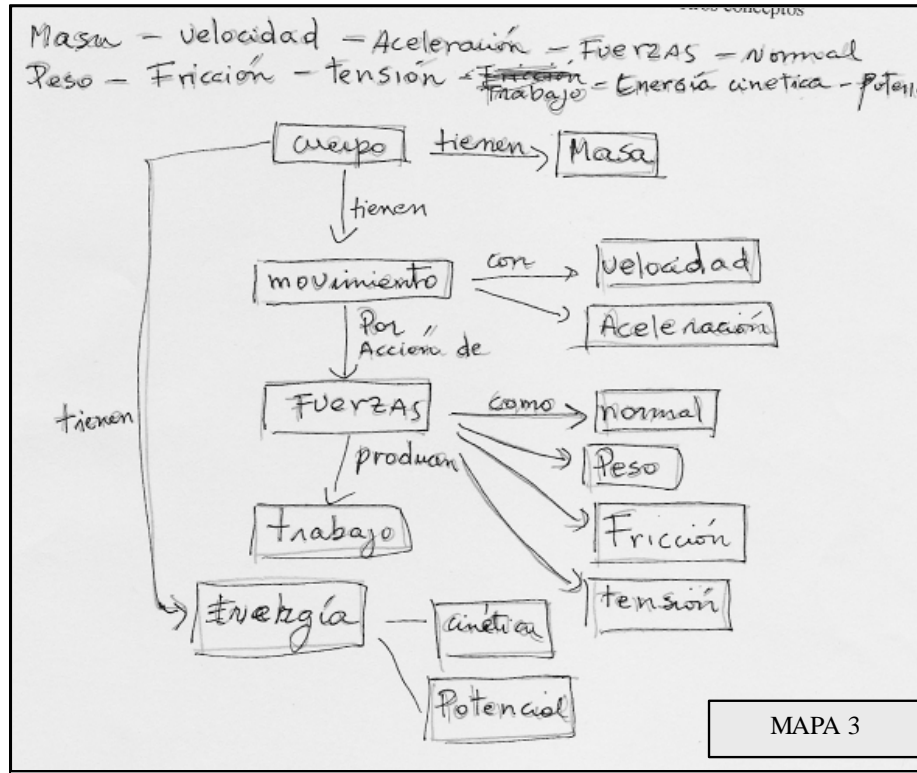 conceptos
Masa - velocidad - Aceleración - FuerzAs - Normal
Peso - Fricción - tensión - Fricción Trabajo - Energía cinetica - Poten
cuerpo tienen Masa
tienen
movimiento con velocidad
Aceleración
Por Acción de
tienen
FuerzAs como normal
producen
Peso
Fricción
trabajo
tensión
Energía
cinética
Potencial
MAPA 3